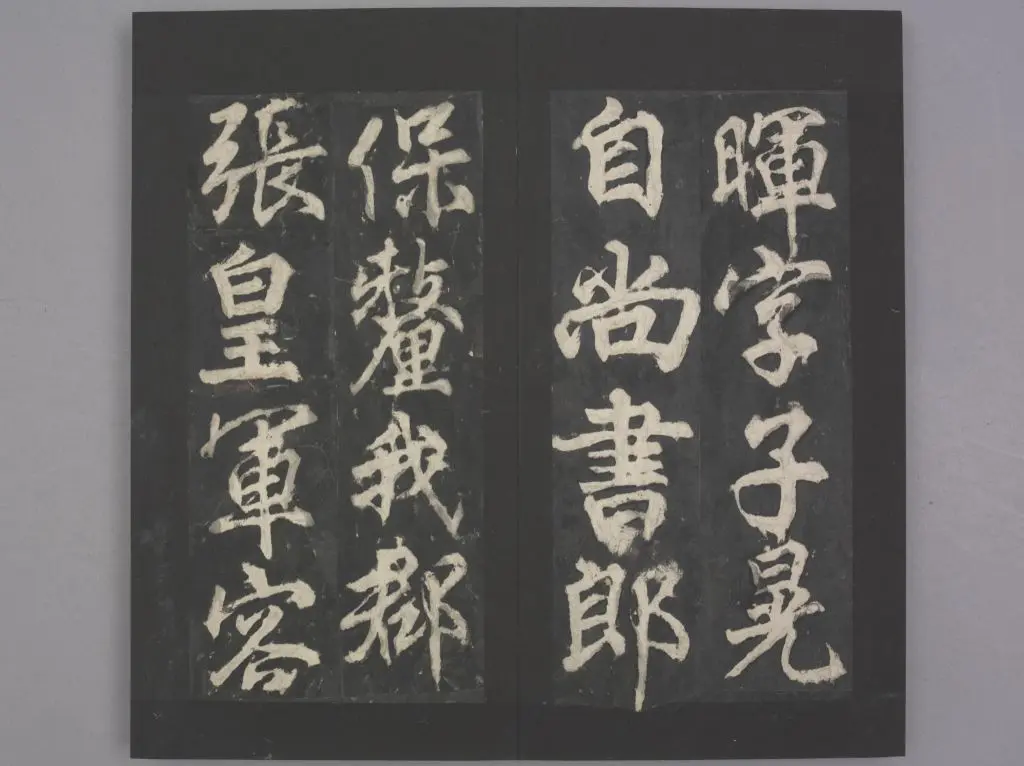 暉字子晃
自尚書郎
保釐我都
張皇軍容